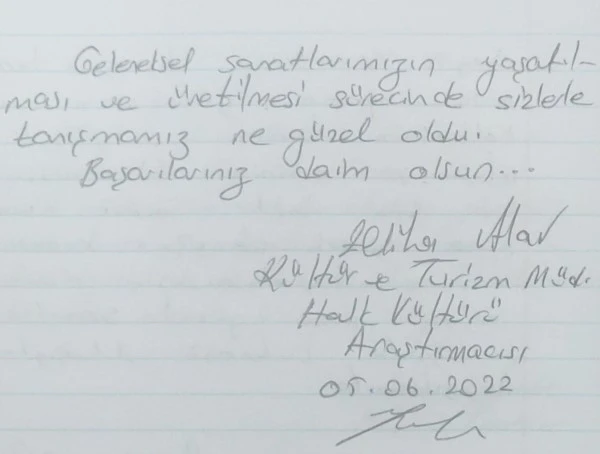 Geleneksel sanatlarımızın yaşatıl-
ması ve üretilmesi sürecinde sizlerle
tanışmamız ne güzel oldu.
Başarılarınız daim olsun...
Zeliha
Kültür ve Turizm Müd.
Halk Kültürü
Araştırmacısı
05.06.2022